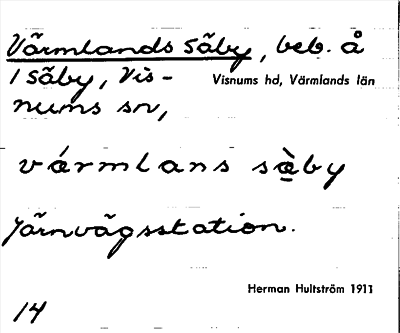 Värmlands Säby, beb. å
1 Säby, Vis-
nums sn,
Visnums hd, Värmlands län
vármlans sæ̀by
Järnvägsstation.
Herman Hultström 1911
14